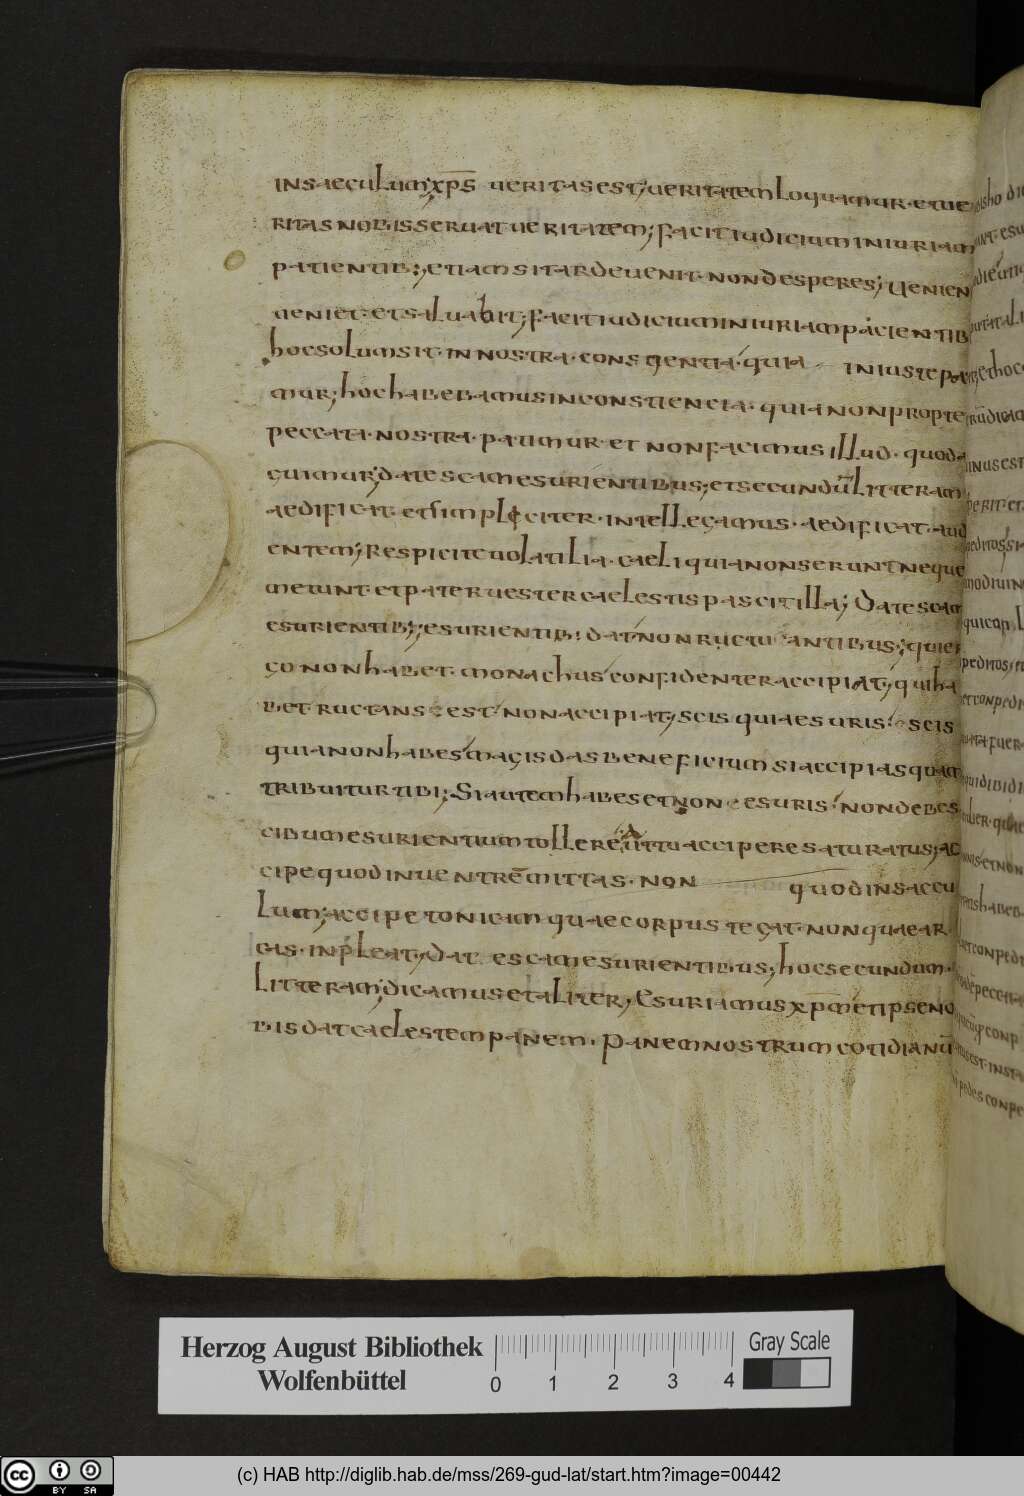 insaeculum; xp̄s ueritasest; ueritatem loquamur. etue
ritas nobisseruat ueritatem; facit iudicium iniuriam
patientib:; etiamsitardeuenit. nondesperes; Uenien
ueniet. etsaluabit; facit iudicium iniuriam pacientib
hocsolumsit. innostra. conscientia. quia iniustepati
mur; hoc habebamusinconstiencia. quia nonpropte
peccata. nostra. patimur. et nonfacimus illud. quod
cuimur; datescamesurientibus; etsecundū litteram
aedificat. etsimpliciter. intellegamus. aedificat. aud
entem; Respicite uolatilia. caeli quianonserunt neque
metunt. etpateruester caelestis pascit illa; Datescam
esurientib:; esurientib: dat. nonructuantibus; quier
go nonhabet. monachus confidenteraccipiat; quiha
bet ructans est. nonaccipiat; scis quiaesuris. scis
quianonhabes. magis dasbeneficium siaccipiasquam
tribuiturtibi; Siautemhabesetnon esuris. nondebes
cibumesurientium tollere. ut tu acciperesaturatus; ac
cipequod inuentrēmittas. non quodinsaccu
lum; accipe tonicam quaecorpus tegat. nonquaear
cas. inpleat; Dat escamesurientibus; hocsecundum
litteram; dicamusetaliter; Esuriamus xp̄m etipseno
bisdatcaelestempanem. Panemnostrum cotidianū
Herzog August Bibliothek
Wolfenbüttel
0 1 2 3 4
Gray Scale
cc BY SA
(c) HAB http://diglib.hab.de/mss/269-gud-lat/start.htm?image=00442